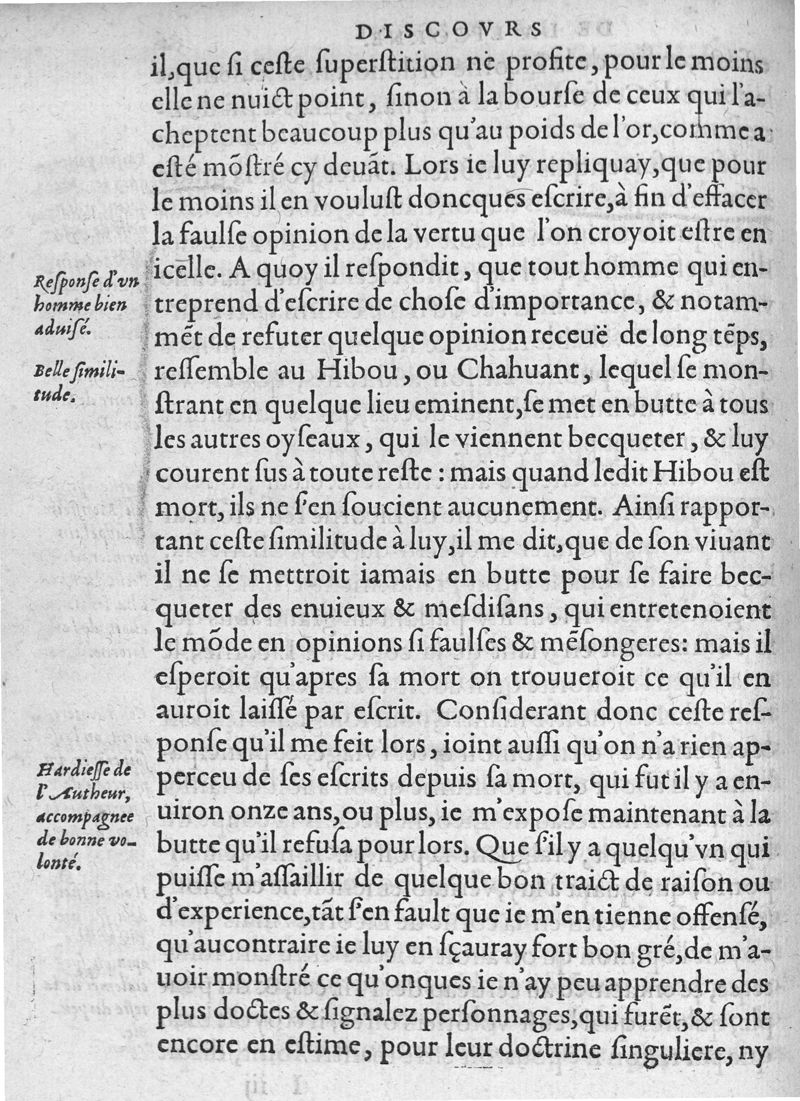 DISCOVRS
il,que ſi ceſte ſuperſtition ne profite, pour le moins
elle ne nuict point, ſinon à la bourſe de ceux qui l'a-
cheptent beaucoup plus qu'au poids de l'or,comme a
eſté mõſtré cy deuãt. Lors ie luy repliquay,que pour
le moins il en vouluſt doncques eſcrire,à fin d'effacer
la faulſe opinion de la vertu que l'on croyoit eſtre en
icelle. A quoy il reſpondit, que tout homme qui en-
treprend d'eſcrire de choſe d'importance, & notam-
mẽt de refuter quelque opinion receuë de long tẽps,
reſſemble au Hibou, ou Chahuant, lequel ſe mon-
ſtrant en quelque lieu eminent,ſe met en butte à tous
les autres oyſeaux, qui le viennent becqueter, & luy
courent ſus à toute reſte : mais quand ledit Hibou eſt
mort, ils ne ſ'en ſoucient aucunement. Ainſi rappor-
tant ceſte ſimilitude à luy,il me dit,que de ſon viuant
il ne ſe mettroit iamais en butte pour ſe faire bec-
queter des enuieux & meſdiſans, qui entretenoient
le mõde en opinions ſi faulſes & mẽſongeres: mais il
eſperoit qu'apres ſa mort on trouueroit ce qu'il en
auroit laiſſé par eſcrit. Conſiderant donc ceſte reſ-
ponſe qu'il me feit lors, ioint auſſi qu'on n'a rien ap-
perceu de ſes eſcrits depuis ſa mort, qui fut il y a en-
uiron onze ans,ou plus, ie m'expoſe maintenant à la
butte qu'il refuſa pour lors. Que ſ'il y a quelqu'vn qui
puiſſe m'aſſaillir de quelque bon traict de raiſon ou
d'experience,tãt ſ'en fault que ie m'en tienne offenſé,
qu'aucontraire ie luy en ſçauray fort bon gré,de m'a-
uoir monſtré ce qu'onques ie n'ay peu apprendre des
plus doctes & ſignalez perſonnages,qui furẽt,& ſont
encore en eſtime, pour leur doctrine ſinguliere, ny
Reſponſe d'vn
homme bien
aduiſé.
Belle ſimili-
tude.
Hardieſſe de
l'Autheur,
accompagnee
de bonne vo-
lonté.